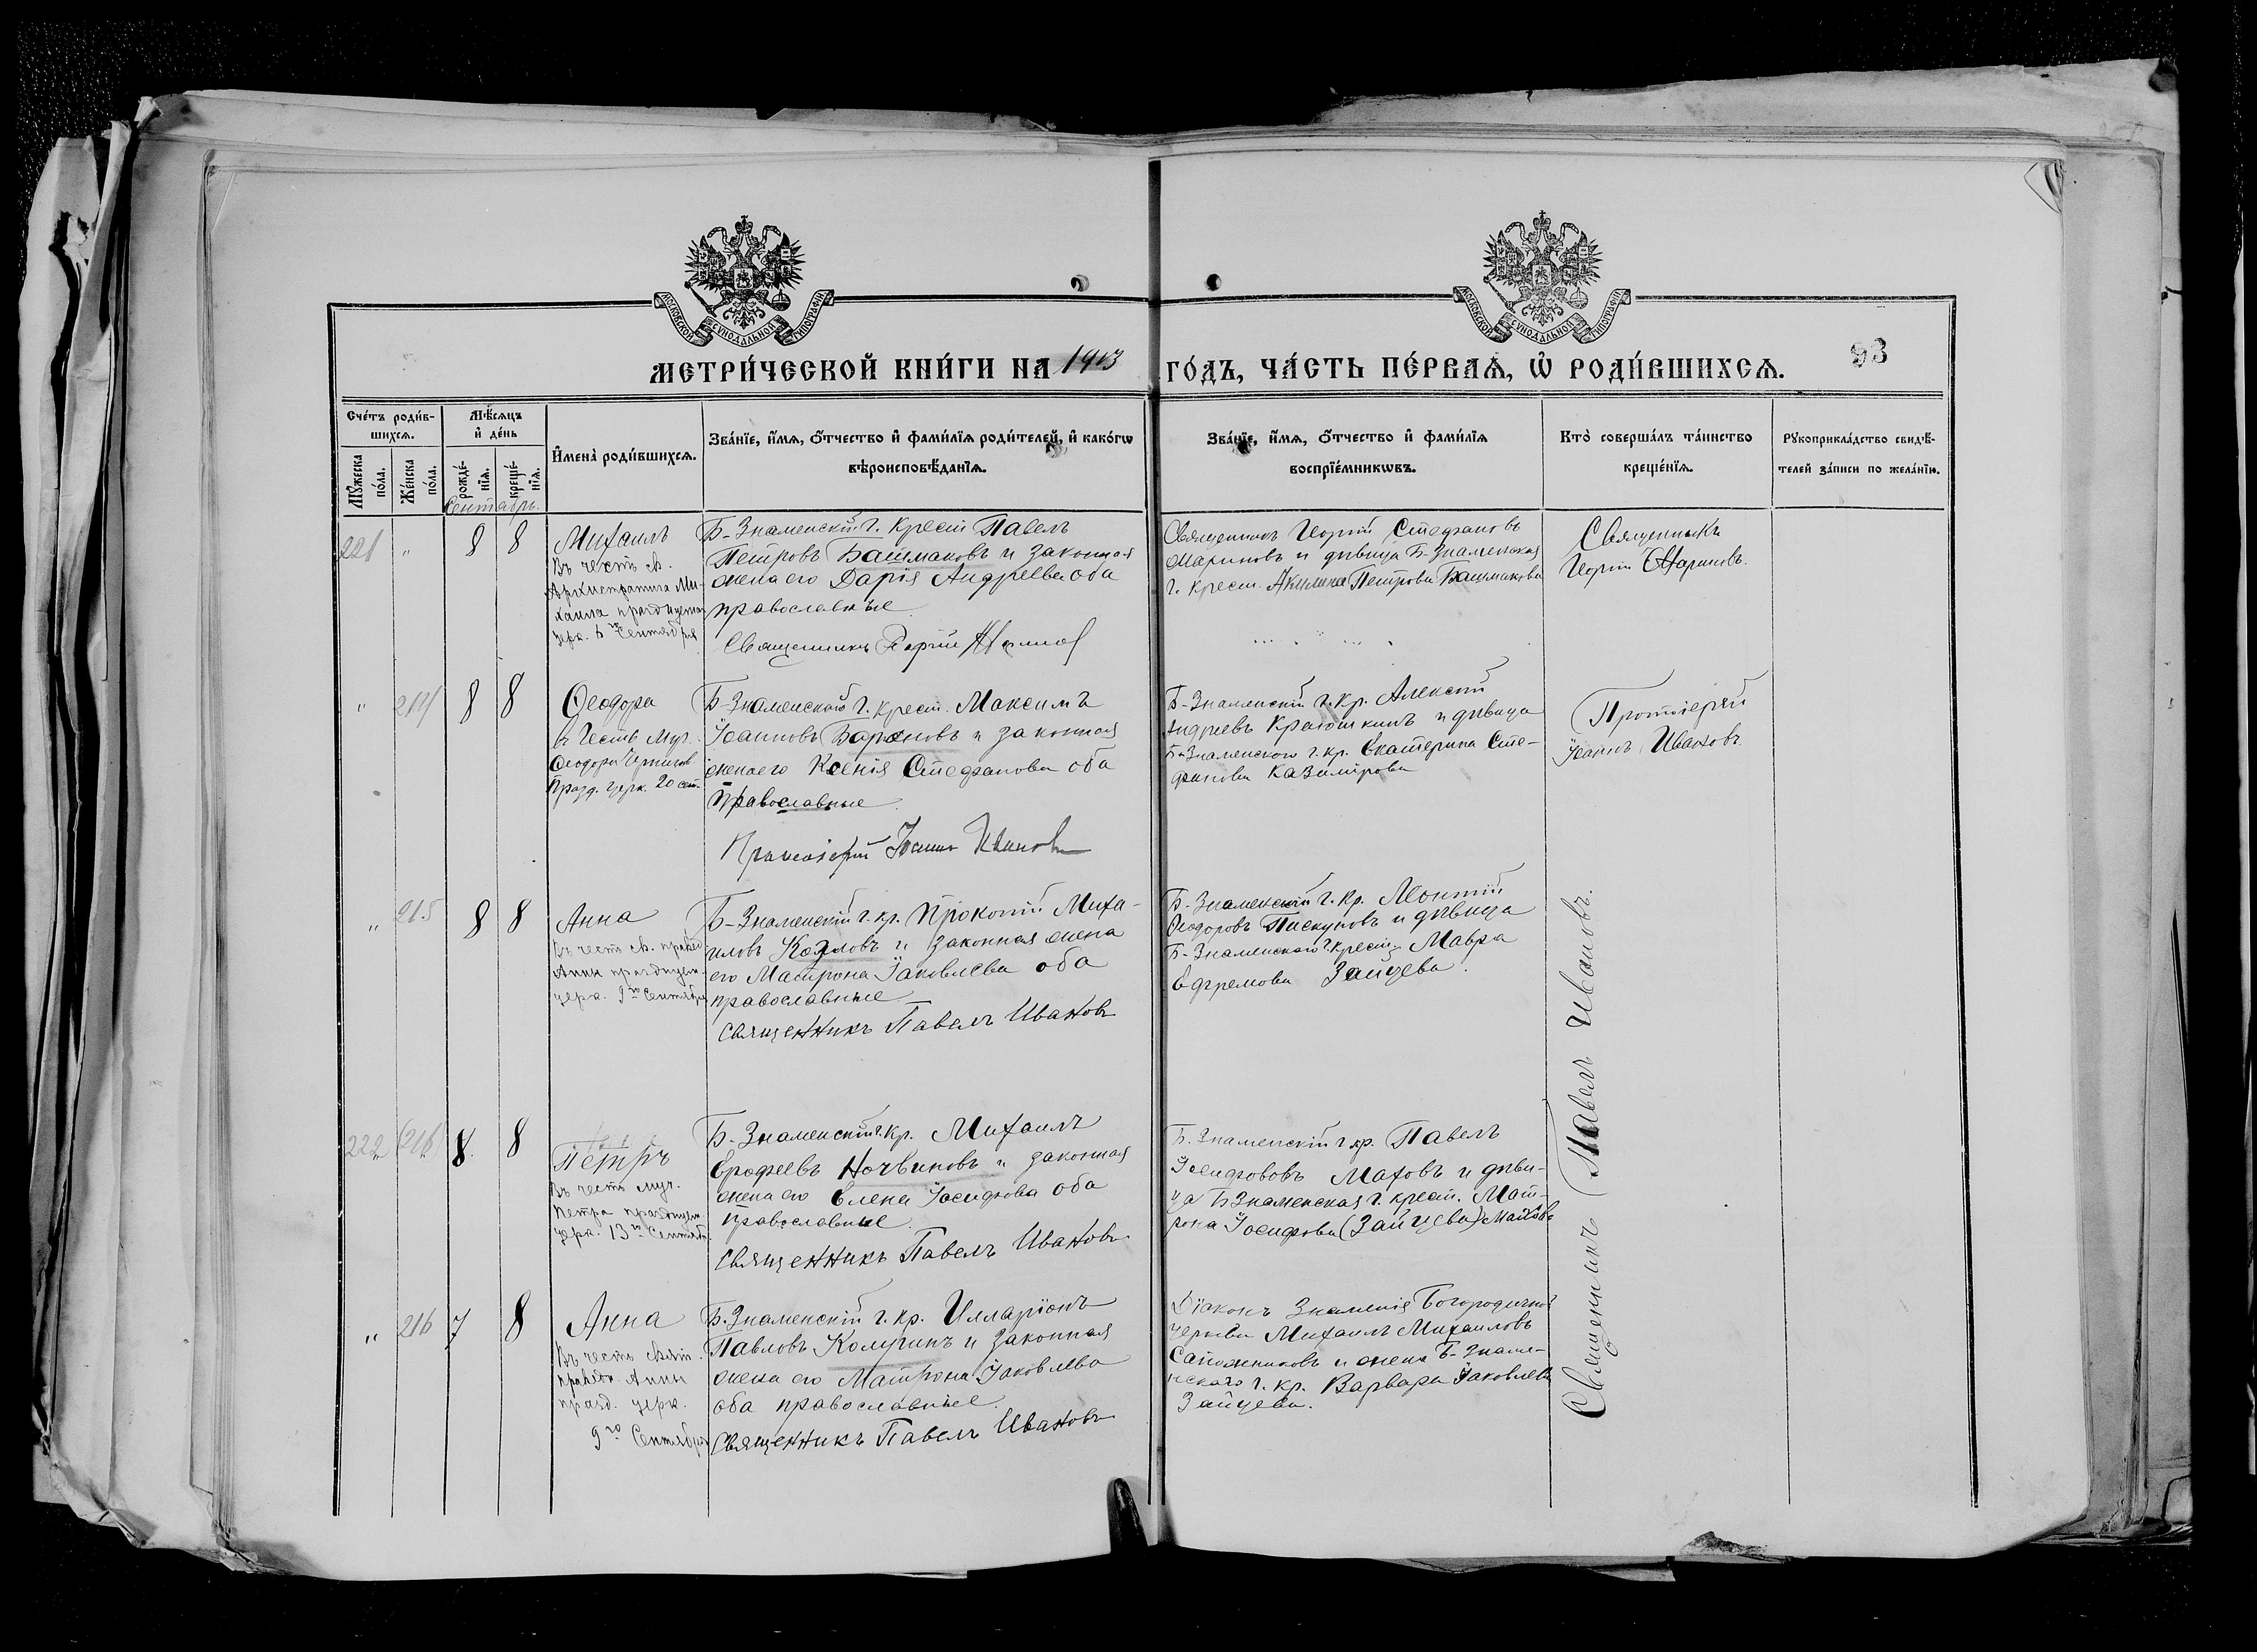 МОСКОВСКОЙ СѴНОДАЛЬНОЙ ТИПОГРАФІИ
МОСКОВСКОЙ СѴНОДАЛЬНОЙ ТИПОГРАФІИ
МЕТРИ́ЧЕСКОЙ КНИ́ГИ НА 1913 ГО́ДЪ, ЧА́СТЬ ПЕ́РВАѦ, Ѡ҆ РОДИ́ВШИХСѦ.
93
Сче́тъ роди́в-
шихсѧ.
Мꙋ́жеска по́ла.
Же́нска по́ла.
Мѣ́сѧцъ
и҆ де́нь
рожде́-нїѧ.
креще́-нїѧ.
И҆мена̀ роди́вшихсѧ.
Зва́нїе, и҆́мѧ, ѻ҆́тчество и҆ фами́лїѧ роди́телей, и҆ како́гѡ
вѣроисповѣ́данїѧ.
Зва́нїе, и҆́мѧ, ѻ҆́тчество и҆ фами́лїѧ
воспрїе́мникѡвъ.
Кто̀ соверша́лъ та́инство
креще́нїѧ.
Рꙋкоприкла́дство свидѣ́-
телей за́писи по жела́нїю.
Сентябрь.
221 " 8 8
Михаилъ
Въ честь св.
Архистратига Ми-
хаила празднуемаго
церк. 6го Сентября
Б-Знаменскій г. крест Павелъ
Петровъ Башмаковъ и законная
жена его Дарія Андреева оба
православные
Священникъ Георгій Мариновъ
Священникъ Георгій Стефановъ
Мариновъ и дѣвица Б-Знаменская
г. крест. Акилина Петрова Башмакова
Священникъ
Георгій Мариновъ.
" 214 8 8
Ѳеодора
въ честь Муч.
Ѳеодора Чернигов
празд. церк. 20 сент.
Б-Знаменскаго г. крест. Максимъ
Іоанновъ Бароновъ и законная
жена его Ксенія Стефанова оба
Православные
Протоіерей Іоаннъ Ивановъ
Б-Знаменскій г. кр. Алексій
Андреевъ Краюшкинъ и дѣвица
Б-Знаменского г. кр. Екатерина Сте-
фанова Казимірова
Протоіерей
Іоаннъ Ивановъ.
" 215 8 8
Анна
Въ честь св. правед
Анны празднуем.
церк. 9го Сентября
Б-Знаменскій г. кр. Прокопій Миха-
иловъ Козловъ и законная жена
его Матрона Іаковлева оба
православные
священникъ Павелъ Ивановъ
Б-Знаменскій г. кр. Леонтій
Ѳеодоровъ Пискуновъ и дѣвица
Б-Знаменскаго г. крест. Мавра
Ефремова Зайцева.
222 (216) 8. 8
Петръ
Въ честь муч.
Петра празднуем.
церк. 13го Сентяб.
Б. Знаменскій г. кр. Михаилъ
Ерофеевъ Ночвиновъ и законная
жена его Елена Іосифова оба
православные.
священникъ Павелъ Ивановъ
Б. Знаменскій г кр. Павелъ
Іосифововъ Маховъ и дѣви-
ца Б Знаменская г. крест. Мат-
рона Іосифова (Зайцева) Махова
" 216 7 8
Анна
Въ честь свят.
правед. Анны
празд. церк.
9го Сентября
Б. Знаменскій г. кр. Илларіонъ
Павловъ Комунинъ и законная
жена его Матрона Іаковлева
оба православные.
Священникъ Павелъ Ивановъ
Діаконъ Знаменія Богородичной
церкви Михаилъ Михаиловъ
Сапожниковъ и жена Б-Знаме-
нскаго г. кр. Варвара Іаковлева
Зайцева.
Священникъ Павелъ Ивановъ.